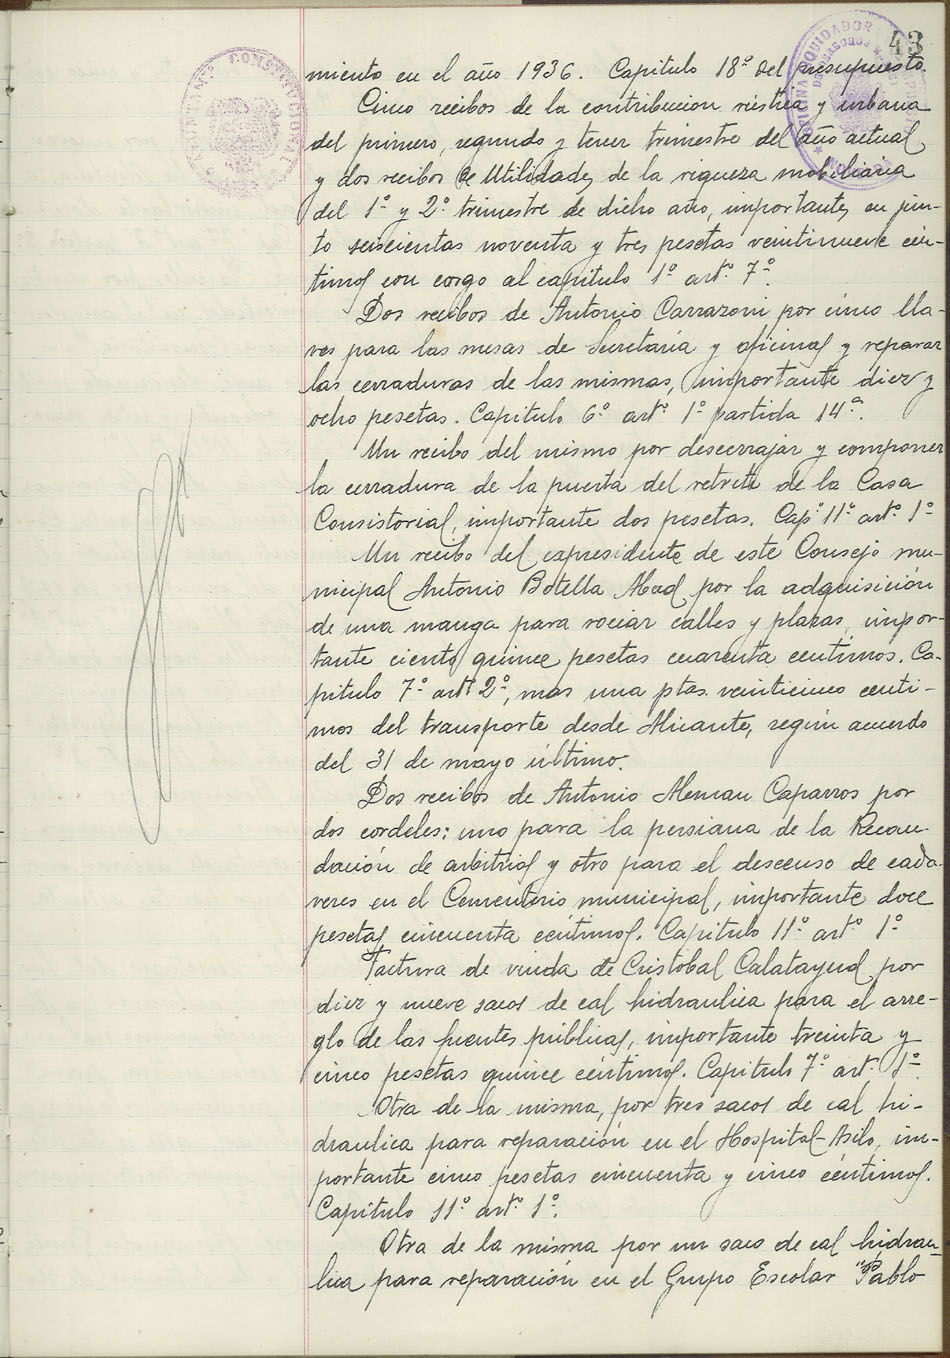 43
miento en el año 1936. Capitulo 18º del presupuesto.
Cinco recibos de la contribucion rústica y urbana
del primero, segundo y tercer trimestre del año actual,
y dos recibos de Utilidades de la riqueza mobiliaria
del 1º y 2º trimestre de dicho año, importantes en jun-
to seiscientas noventa y tres pesetas veintinueve cén-
timos con cargo al capitulo 1º artº 7º.
Dos recibos de Antonio Carrazoni por cinco lla-
ves para las mesas de Secretaria y oficinas y reparar
las cerraduras de las mismas, importante diez y
ocho pesetas. Capitulo 6º artº 1º partida 14ª.
Un recibo del mismo por descerrajar y componer
la cerradura de la puerta del retrete de la Casa
Consistorial, importante dos pesetas. Capº 11º artº 1º
Un recibo del expresidente de este Consejo mu-
nicipal Antonio Botella Abad por la adquisición
de una manga para rociar calles y plazas, impor-
tante ciento quince pesetas cuarenta centimos. Ca-
pitulo 7º artº 2º, mas una ptas. veinticinco centi-
mos del transporte desde Alicante, según acuerdo
del 31 de mayo último.
Dos recibos de Antonio Aleman Caparros por
dos cordeles: uno para la persiana de la Recau-
dación de arbitrios y otro para el descenso de cada-
veres en el Cementerio municipal, importante doce
pesetas cincuenta céntimos. Capitulo 11º artº 1º
Factura de viuda de Cristobal Calatayud por
diez y nueve sacos de cal hidraulica para el arre-
glo de las fuentes públicas, importante treinta y
cinco pesetas quince céntimos. Capitulo 7º artº 1º
Otra de la misma, por tres sacos de cal hi-
draulica para reparación en el Hospital-Asilo, im-
portante cinco pesetas cincuenta y cinco céntimos.
Capitulo 11º artº 1º.
Otra de la misma por un saco de cal hidrau-
lica para reparación en el Grupo Escolar "Pablo